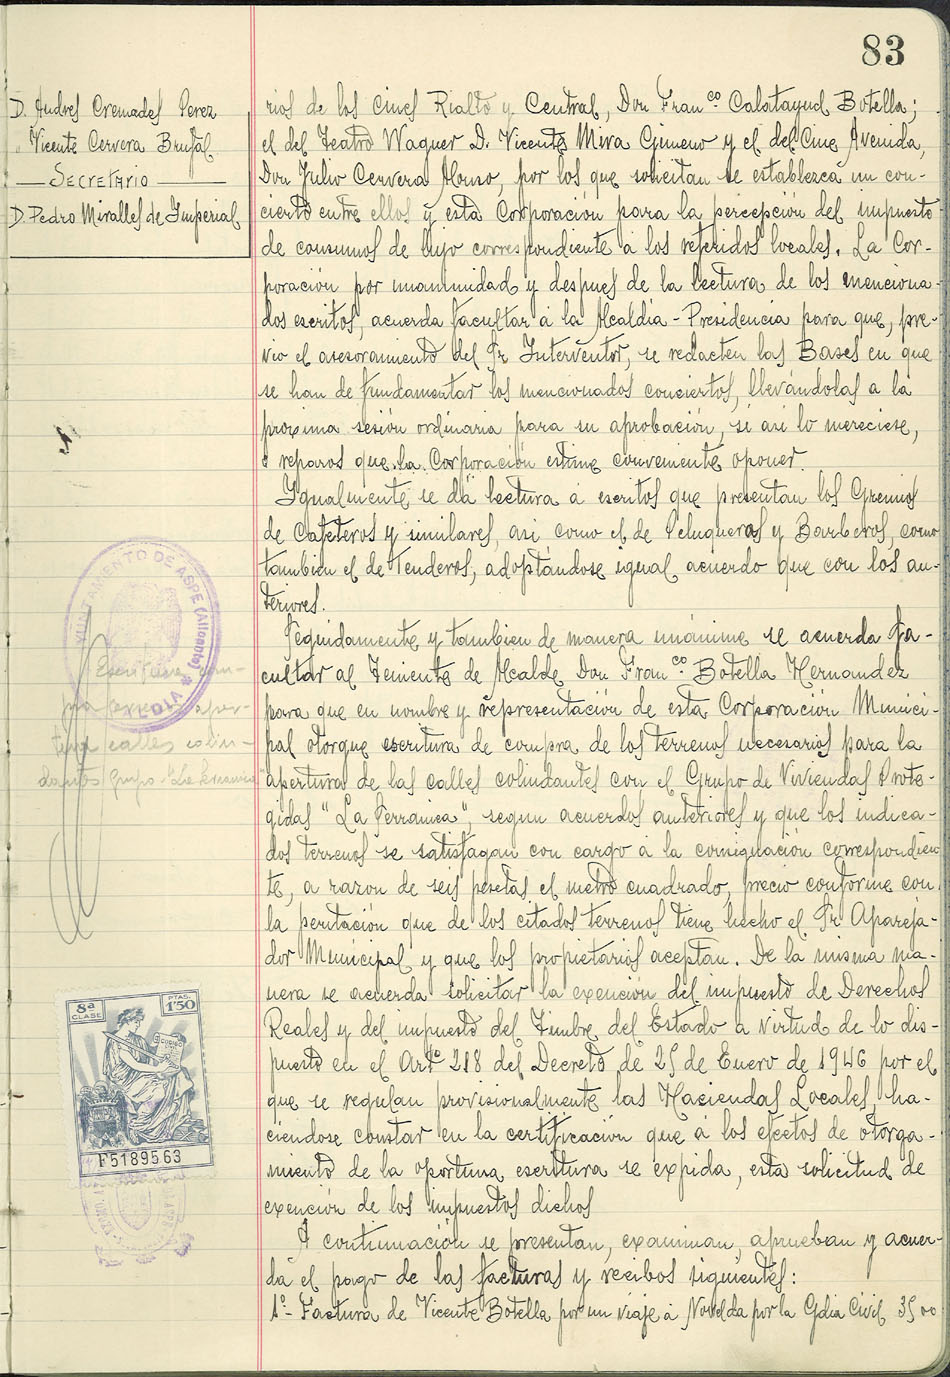 83
D. Andres Cremades Perez
" Vicente Cervera Brufal
SECRETARIO
D. Pedro Miralles de Imperial
rios de los cines Rialto y Central, Don Fran.co Calatayud Botella;
el del Teatro Wagner D. Vicente Mira Gimeno y el del Cine Avenida,
Don Julio Cervera Alonso, por los que solicitan se establezca un con-
cierto entre ellos y esta Corporación para la percepción del impuesto
de consumos de lujo correspondiente a los referidos locales. La Cor-
poración por unanimidad y despues de la lectura de los menciona-
dos escritos, acuerda facultar a la Alcaldia-Presidencia para que, pre-
vio el asesoramiento del Sr Interventor, se redacten las Bases en que
se han de fundamentar los mencionados conciertos, llevándolas a la
próxima sesión ordinaria para su aprobación, si asi lo mereciese,
o reparos que la Corporación estime conveniente oponer.
Igualmente se da lectura a escritos que presentan los Gremios
de Cafeteros y similares, asi como el de Peluqueras y Barberos, como
tambien el de Tenderos, adoptándose igual acuerdo que con los an-
teriores.
Seguidamente y tambien de manera unánime se acuerda fa-
cultar al Teniente de Alcalde Don Fran.co Botella Hernandez
para que en nombre y representación de esta Corporación Munici-
pal otorgue escritura de compra de los terrenos necesarios para la
apertura de las calles colindantes con el Grupo de Viviendas Prote-
gidas "La Serranica", segun acuerdos anteriores y que los indica-
dos terrenos se satisfagan con cargo a la consignación correspondien
te, a razon de seis pesetas el metro cuadrado, precio conforme con
la peritación que de los citados terrenos tiene hecho el Sr Apareja-
dor Municipal y que los propietarios aceptan. De la misma ma-
nera se acuerda solicitar la exención del impuesto de Derechos
Reales y del impuesto del Timbre del Estado a virtud de lo dis-
puesto en el Artº 218 del Decreto de 25 de Enero de 1946 por el
que se regulan provisionalmente las Haciendas Locales, ha-
ciendose constar en la certificación que a los efectos de otorga-
miento de la oportuna escritura se expida, esta solicitud de
exención de los impuestos dichos
A continuación se presentan, examinan, aprueban y acuer-
da el pago de las facturas y recibos siguientes:
1º- Factura de Vicente Botella por un viaje a Novelda por la Gdia Civil 35'00
AYUNTAMIENTO DE ASPE (Alicante)
ALCALDIA
Escritura com-
pra terrenos aper-
tura calles colin-
dantes Grupo "La Serranica"
8ª CLASE
PTAS. 1'50
F5189563